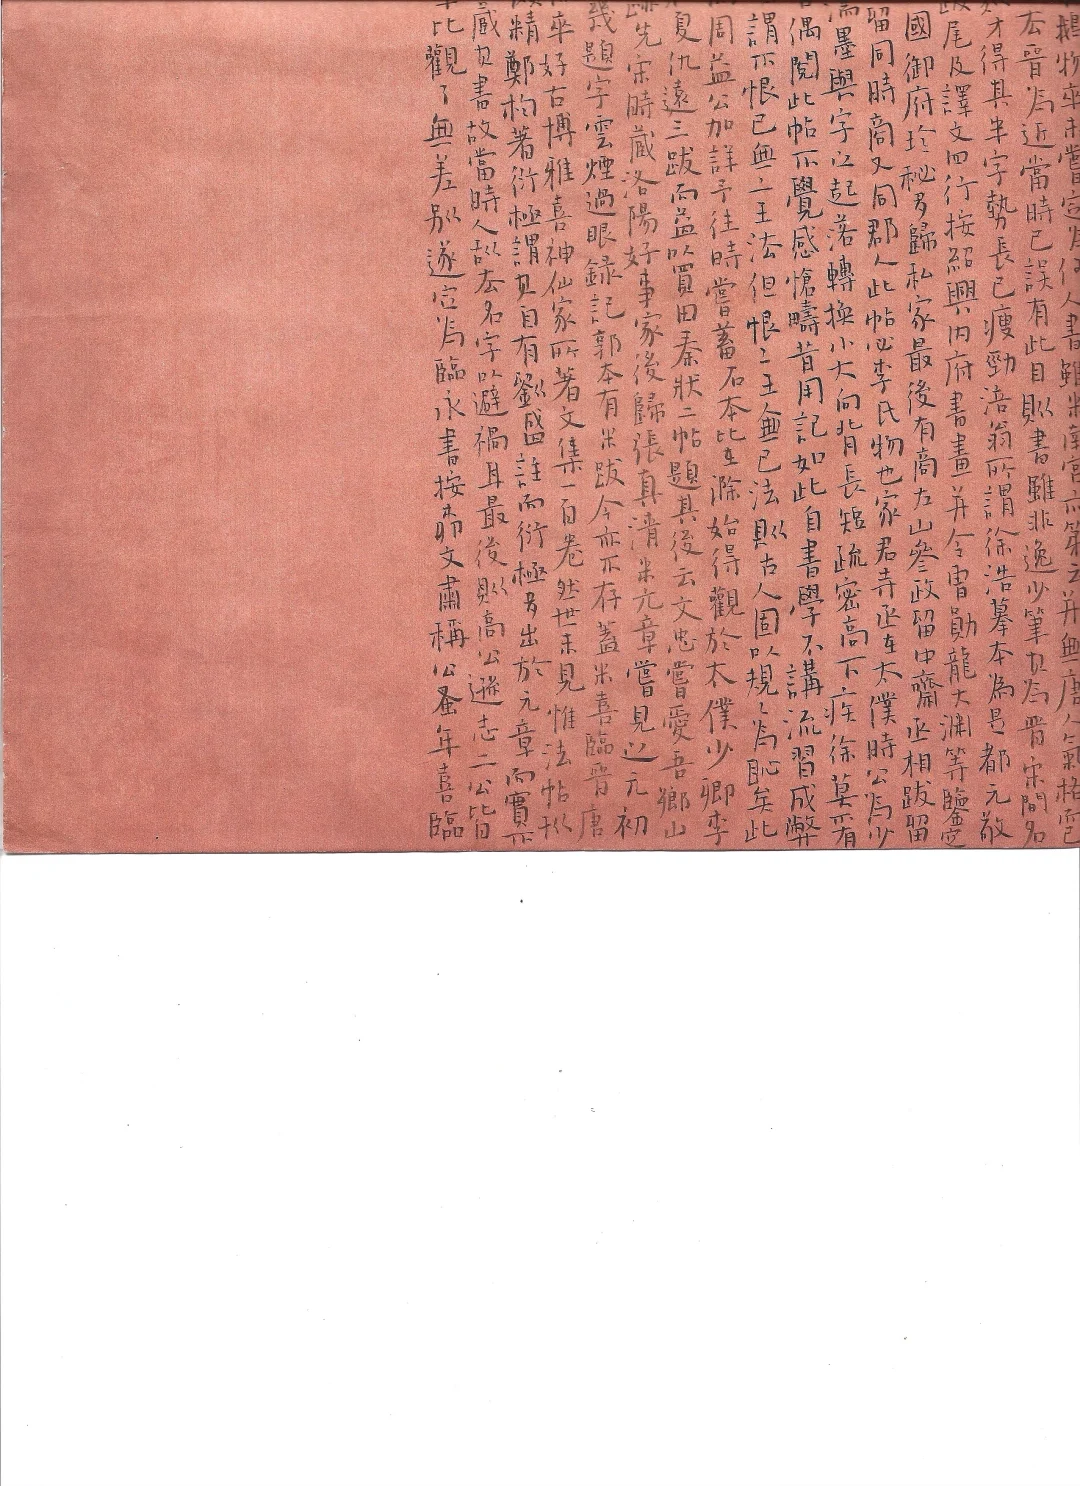 物率未嘗定為何人書雖米南宮亦第云并無唐人氣格而已
去晉為近當時已誤有此目則書雖非逸少筆其為晉宋間名
才得其半字勢長已瘦勁涪翁所謂徐浩摹本為是都元敬
跋尾及譯文四行按紹興內府書畫并令曾勛龍大渊等鑒定
國御府珍秘多歸私家最後有商左山參政留中齋丞相跋留
留同時商又同郡人此帖必李氏物也家君寺丞在太僕時公為少
濡墨與字之起落轉換小大向背長短疏密高下疾徐莫不有
偶閱此帖不覺感愴疇昔用記如此自書學不講流習成弊
謂不恨已無二王法但恨二王無已法則古人固以規〻為恥矣此
周益公加詳予往時嘗蓄石本比在滁始得觀於太僕少卿李
夏仇遠三跋而益以買田奏狀二帖題其後云文忠嘗愛吾鄉山
跡先宋時藏洛陽好事家後歸張真清米元章嘗見之元初
幾題字雲煙過眼錄記郭本有米跋今亦不存蓋米喜臨晉唐
率好古博雅喜神仙家所著文集一百卷然世未見惟法帖
精鄭枃著衍極謂其自有劉盛註而衍極多出於元章而實
藏其書故當時人去名字以避禍耳最後則高公遜志二公皆
比觀了無差別遂定為臨永書按文肅稱公蚤年喜臨